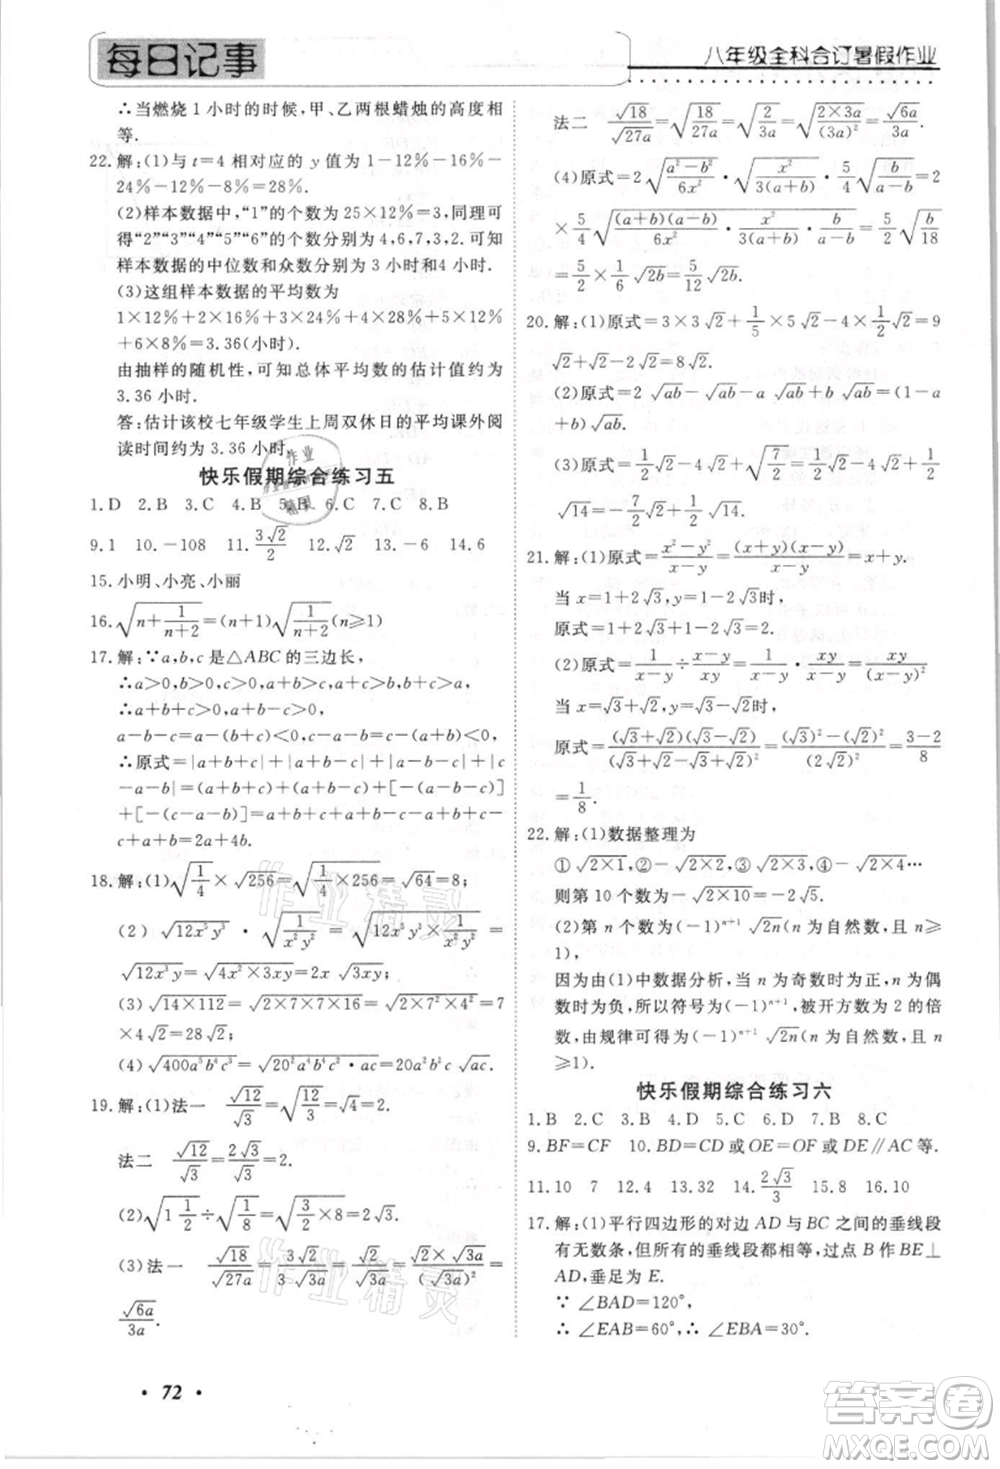 每日记事
八年级全科合订暑假作业
∴当燃烧 1 小时的时候,甲、乙两根蜡烛的高度相
等.
22.解:(1)与 t=4 相对应的 y 值为 1-12%-16%-
24%-12%-8%=28%.
(2)样本数据中,“1”的个数为 25×12%=3,同理可
得“2”“3”“4”“5”“6”的个数分别为 4,6,7,3,2.可知
样本数据的中位数和众数分别为 3 小时和4 小时.
(3)这组样本数据的平均数为
1×12%+2×16%+3×24%+4×28%+5×12%
+6×8%=3.36(小时).
由抽样的随机性,可知总体平均数的估计值约为
3.36 小时.
答:估计该校七年级学生上周双休日的平均课外阅
读时间约为 3.36 小时.
快乐假期综合练习五
1.D 2.B 3.C 4.B 5.B 6.C 7.C 8.B
9.1 10.-108 11.3√2/2 12.√2 13.-6 14.6
15.小明、小亮、小丽
16.√(n+1/(n+2))=(n+1)√(1/(n+2))(n≥1)
17.解:∵a,b,c 是△ABC 的三边长,
∴a>0,b>0,c>0,a+b>c,b+c>a,
∴a+b+c>0,b+c-a>0,
a-b-c=a-(b+c)<0,c-b-a<0,
∴原式=|a+b+c|+|b+c-a|+|c
-a-b|=(a+b+c)+[-(a-b-c)]
+[-(c-a-b)]=a+b+c+b+c-a-
c+a+b=2a+4b.
18.解:(1)√(1/4)×√256=√(1/4×256)=√64=8;
(2)√(12x⁵y³)·√(1/(x²y²))=√(12x⁵y³×1/(x²y²))=
√(12x³y)=√(4x²·3xy)=2x√(3xy);
(3)√(14×112)=√(2×7×7×16)=√(2×7²×4²)=7
×4√2=28√2;
(4)√(400a⁵b⁴c³)=√(20²a⁴b⁴c²·ac)=20a²b²c√ac.
19.解:(1)法一 √12/√3=√(12/3)=√4=2.
法二 √12/√3=2√3/√3=2.
(2)√(1/2)÷√(3/8)=√(3/2×8)=2√3.
(3)法一 √18/√27a=3√2/3√3a=√2×√3a/(√3a)²=
√6a/3a.
法二 √18/√27a=√(18/27a)=√(2/3a)=√(2×3a/(3a)²)=√6a/3a.
(4)原式=2√((a²-b²)/6x²)·√(x²/3(a+b))·5/4√(9/(a-b))=2
×5/4√((a+b)(a-b)/6x²·x²/3(a+b)·9/(a-b))=5/2√(9/18)
=5/2×1/6×√2b=5/12√2b.
20.解:(1)原式=3×3√2+1/5×5√2-4×1/2√2=9
√2+√2-2√2=8√2.
(2)原式=√ab-a√ab+b√ab=(1-a
+b)√ab.
(3)原式=√14-√(7/2)=√14-1/2
√14=1/2√14.
21.解:(1)原式=(x²-y²)/(x-y)=(x+y)(x-y)/(x-y)=x+y.
当 x=1+2√3,y=1-2√3时,
原式=1+2√3+1-2√3=2.
(2)原式=(x+y)/xy÷(x-y)²/(x-y)
当 x=√3+√2,y=√3-√2时,
原式=(√3+√2)(√3-√2)/(√3+√2-√3+√2)²=((√3)²-(√2)²)/(2√2)²=(3-2)/8
=1/8.
22.解:(1)数据整理为
①√(2×1),②-√(2×2),③√(2×3),④-√(2×4)…
则第 10 个数为-√(2×10)=-2√5.
(2)第 n 个数为(-1)ⁿ⁺¹√2n(n 为自然数,n≥
1),
因为由(1)中数据分析,当 n 为奇数时为正,n 为偶
数时为负,所以符号为(-1)ⁿ⁺¹,被开方数为 2 的倍
数,由规律可得为(-1)ⁿ⁺¹√2n(n 为自然数,n
≥1).
快乐假期综合练习六
1.B 2.C 3.B 4.D 5.C 6.D 7.B 8.C
9.BF=CF 10.BD=CD 或 OE=OF 或 DE∥AC 等.
11.10 7 12.4 13.32 14.2√3/3 15.8 16.10
17.解:(1)平行四边形的对边 AD 与 BC 之间的垂线段
有无数条,但所有的垂线段都相等,过点 B 作 BE⊥
AD,垂足为 E.
∵∠BAD=120°,
∴∠EAB=60°,∠EBA=30°.
· 72 ·
作业精灵
作业精灵
答案圈
MXQE.COM